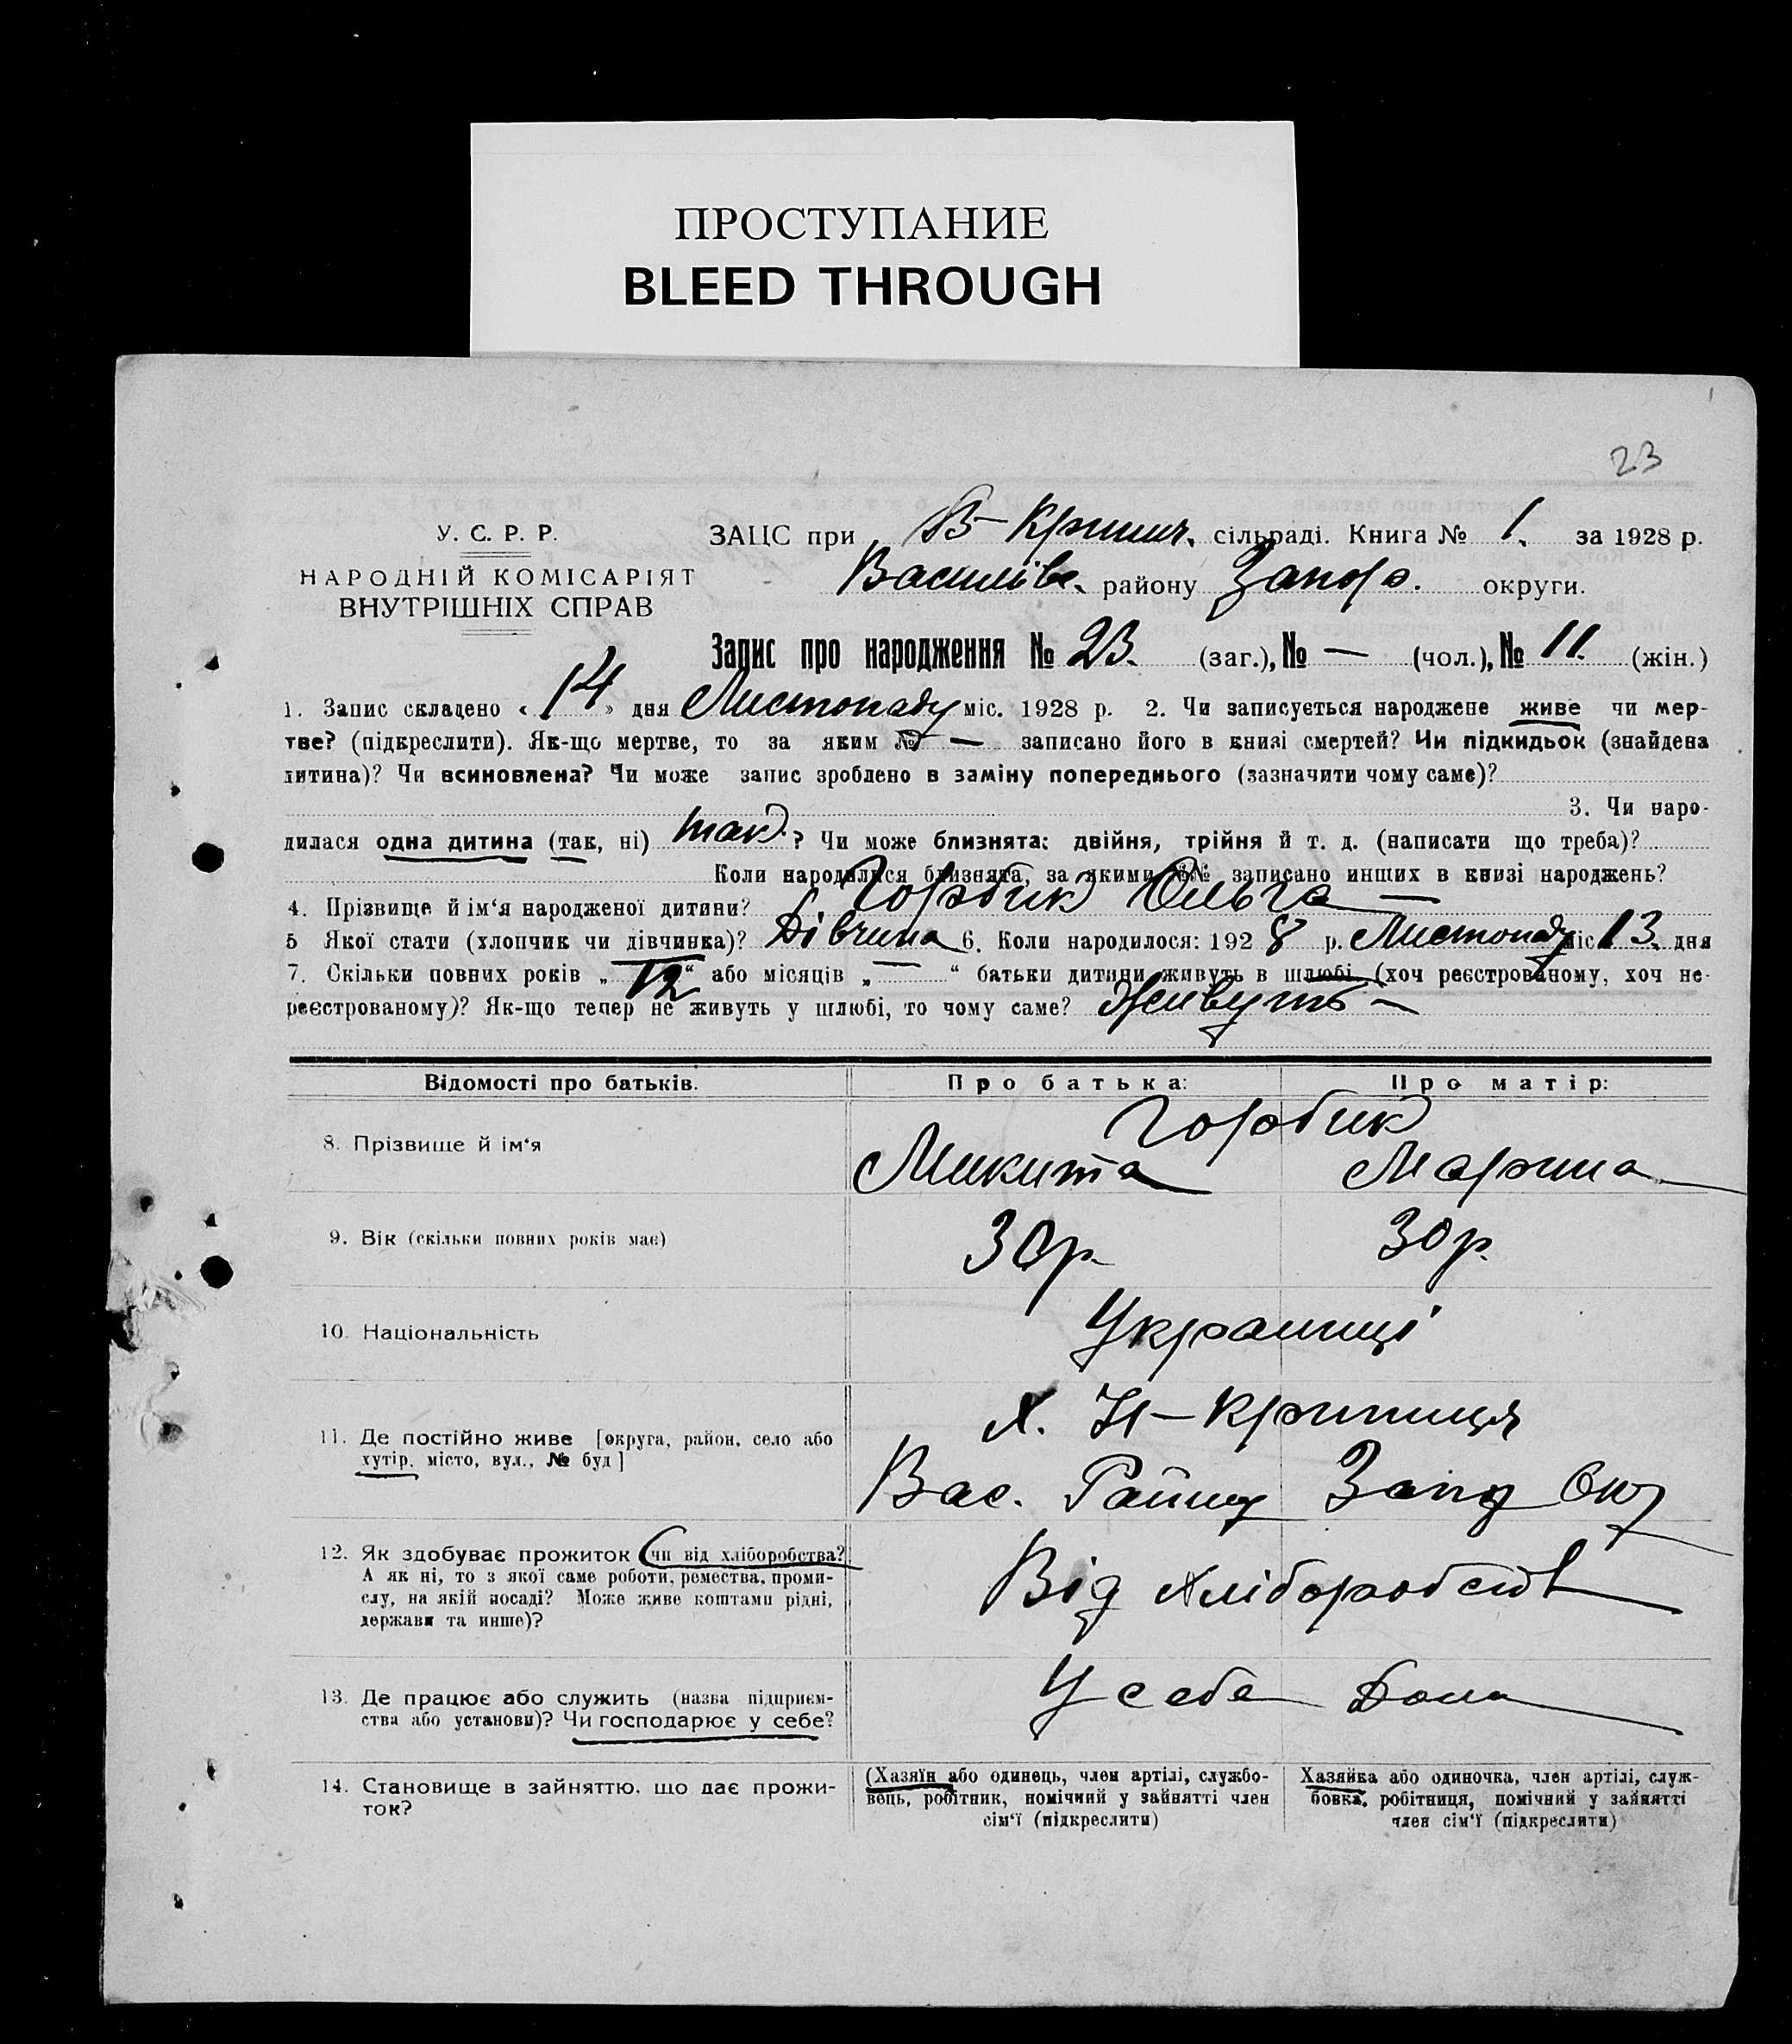 ПРОСТУПАНИЕ
BLEED THROUGH
23
У. С. Р. Р.
НАРОДНІЙ КОМІСАРІЯТ
ВНУТРІШНІХ СПРАВ
ЗАЦС при В-Кринич. сільраді. Книга № 1. за 1928 р.
Василівс. району Запор. округи.
Запис про народження № 23. (заг.), № — (чол.), № 11. (жін.)
1. Запис складено « 14 » дня Листопаду міс. 1928 р. 2. Чи записується народжене живе чи мер-
тве? (підкреслити). Як-що мертве, то за яким № — записано його в книзі смертей? Чи підкидьок (знайдена
дитина)? Чи всиновлена? Чи може запис зроблено в заміну попереднього (зазначити чому саме)?
3. Чи наро-
дилася одна дитина (так, ні) так ? Чи може близнята: двійня, трійня й т. д. (написати що треба)?
Коли народилися близнята, за якими №№ записано инших в книзі народжень?
4. Прізвище й ім‘я народженої дитини? Горбик Ольга —
5 Якої стати (хлопчик чи дівчинка)? Дівчина 6. Коли народилося: 1928 р. Листопаду міс 13. дня
7. Скільки повних років „ 12 “ або місяців „ — “ батьки дитини живуть в шлюбі (хоч реєстрованому, хоч не-
реєстрованому)? Як-що тепер не живуть у шлюбі, то чому саме? Живуть —
Відомості про батьків. Про батька: Про матір:
8. Прізвище й ім‘я Горбик
Микита Марина
9. Вік (скільки повних років має) 30 р. 30 р.
10. Національність Українці
11. Де постійно живе [округа, район, село або
хутір, місто, вул., № буд]
х. Н-Криниця
Вас. Району Запор Окр
12. Як здобуває прожиток (чи від хліборобства?
А як ні, то з якої саме роботи, ремества, проми-
слу, на якій посаді? Може живе коштами рідні,
держави та инше)?
Від хліборобств
13. Де працює або служить (назва підприєм-
ства або установи)? Чи господарює у себе?
У себе Дома
14. Становище в зайняттю, що дає прожи-
ток?
(Хазяїн або одинець, член артілі, службо-
вець, робітник, помічний у зайнятті член
сім‘ї (підкреслити)
Хазяйка або одиночка, член артілі, служ-
бовка, робітниця, помічний у зайнятті
член сім‘ї (підкреслити)